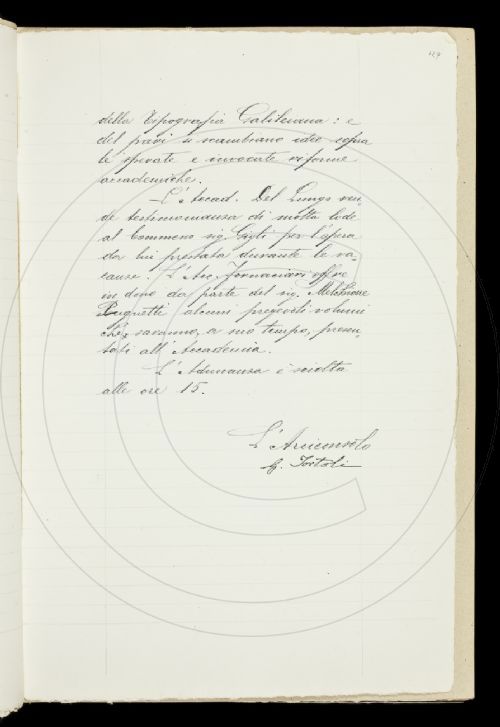 129
della Tipografia Galileiana: e
del pari si scambiano idee sopra
le sperate e invocate riforme
accademiche.
L'Accad. Del Lungo ren-
de testimonianza di molta lode
al Commeno sig. Gigli per l'opera
da lui prestata durante le va-
canze. L'Acc. Fornaciari offre
in dono da parte del sig. Melchiorre
Buguetti alcuni pregevoli volumi
che saranno, a suo tempo, presen-
tati all'Accademia.
L'Adunanza è sciolta
alle ore 15.
L'Arciconsolo
G. Tortoli